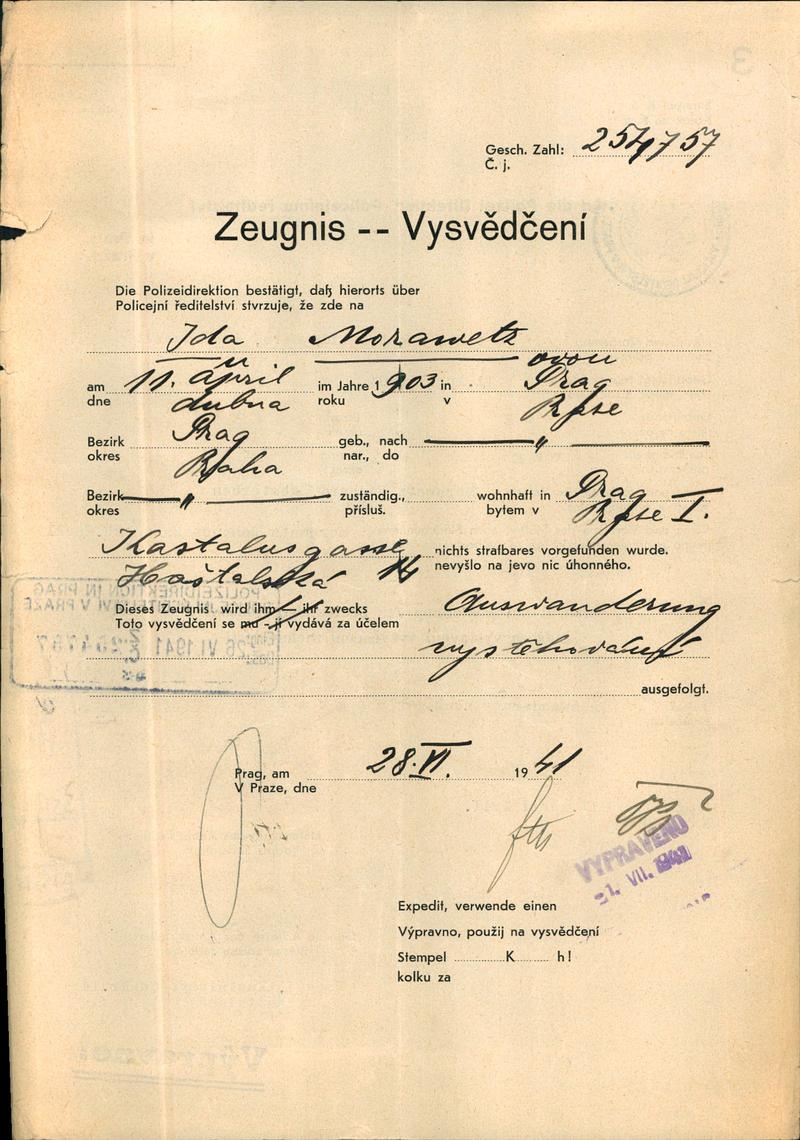 Gesch. Zahl: 254757
Č. j.
Zeugnis -- Vysvědčení
Die Polizeidirektion bestätigt, daß hierorts über
Policejní ředitelství stvrzuje, že zde na
Ida Morawetz
u ovou
am 11. April im Jahre 1903 in Prag
dne dubna roku v Praze
Bezirk Prag geb., nach "
okres Praha nar., do
Bezirk " zuständig., wohnhaft in Prag I.
okres přísluš. bytem v Praze
Kastalusgasse nichts strafbares vorgefunden wurde.
Haštalská 14 nevyšlo na jevo nic úhonného.
Dieses Zeugnis wird ihm - ihr zwecks Auswanderung
Toto vysvědčení se mu - jí vydává za účelem
vystěhování
ausgefolgt.
Prag, am 28. VI. 1941
V Praze, dne
VYPRAVENO
1. VII. 1941
Expedit, verwende einen
Výpravno, použij na vysvědčení
Stempel K h!
kolku za